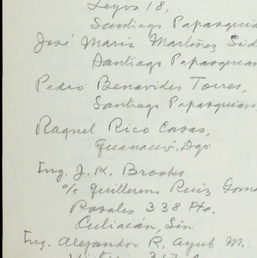 Leyva 18,
Santiago Papasquia
José María Martínez
Santiago Papasquia
Pedro Benavides Torres,
Santiago Papasquiaro
Raquel Rico Casas,
Guanaceví, Dgo
Ing. J. K. Brooks
c/o Guillermo Ruiz Gome
Rosales 338 Pte.
Culiacán, Sin
Ing. Alejandro R. Ayub M.